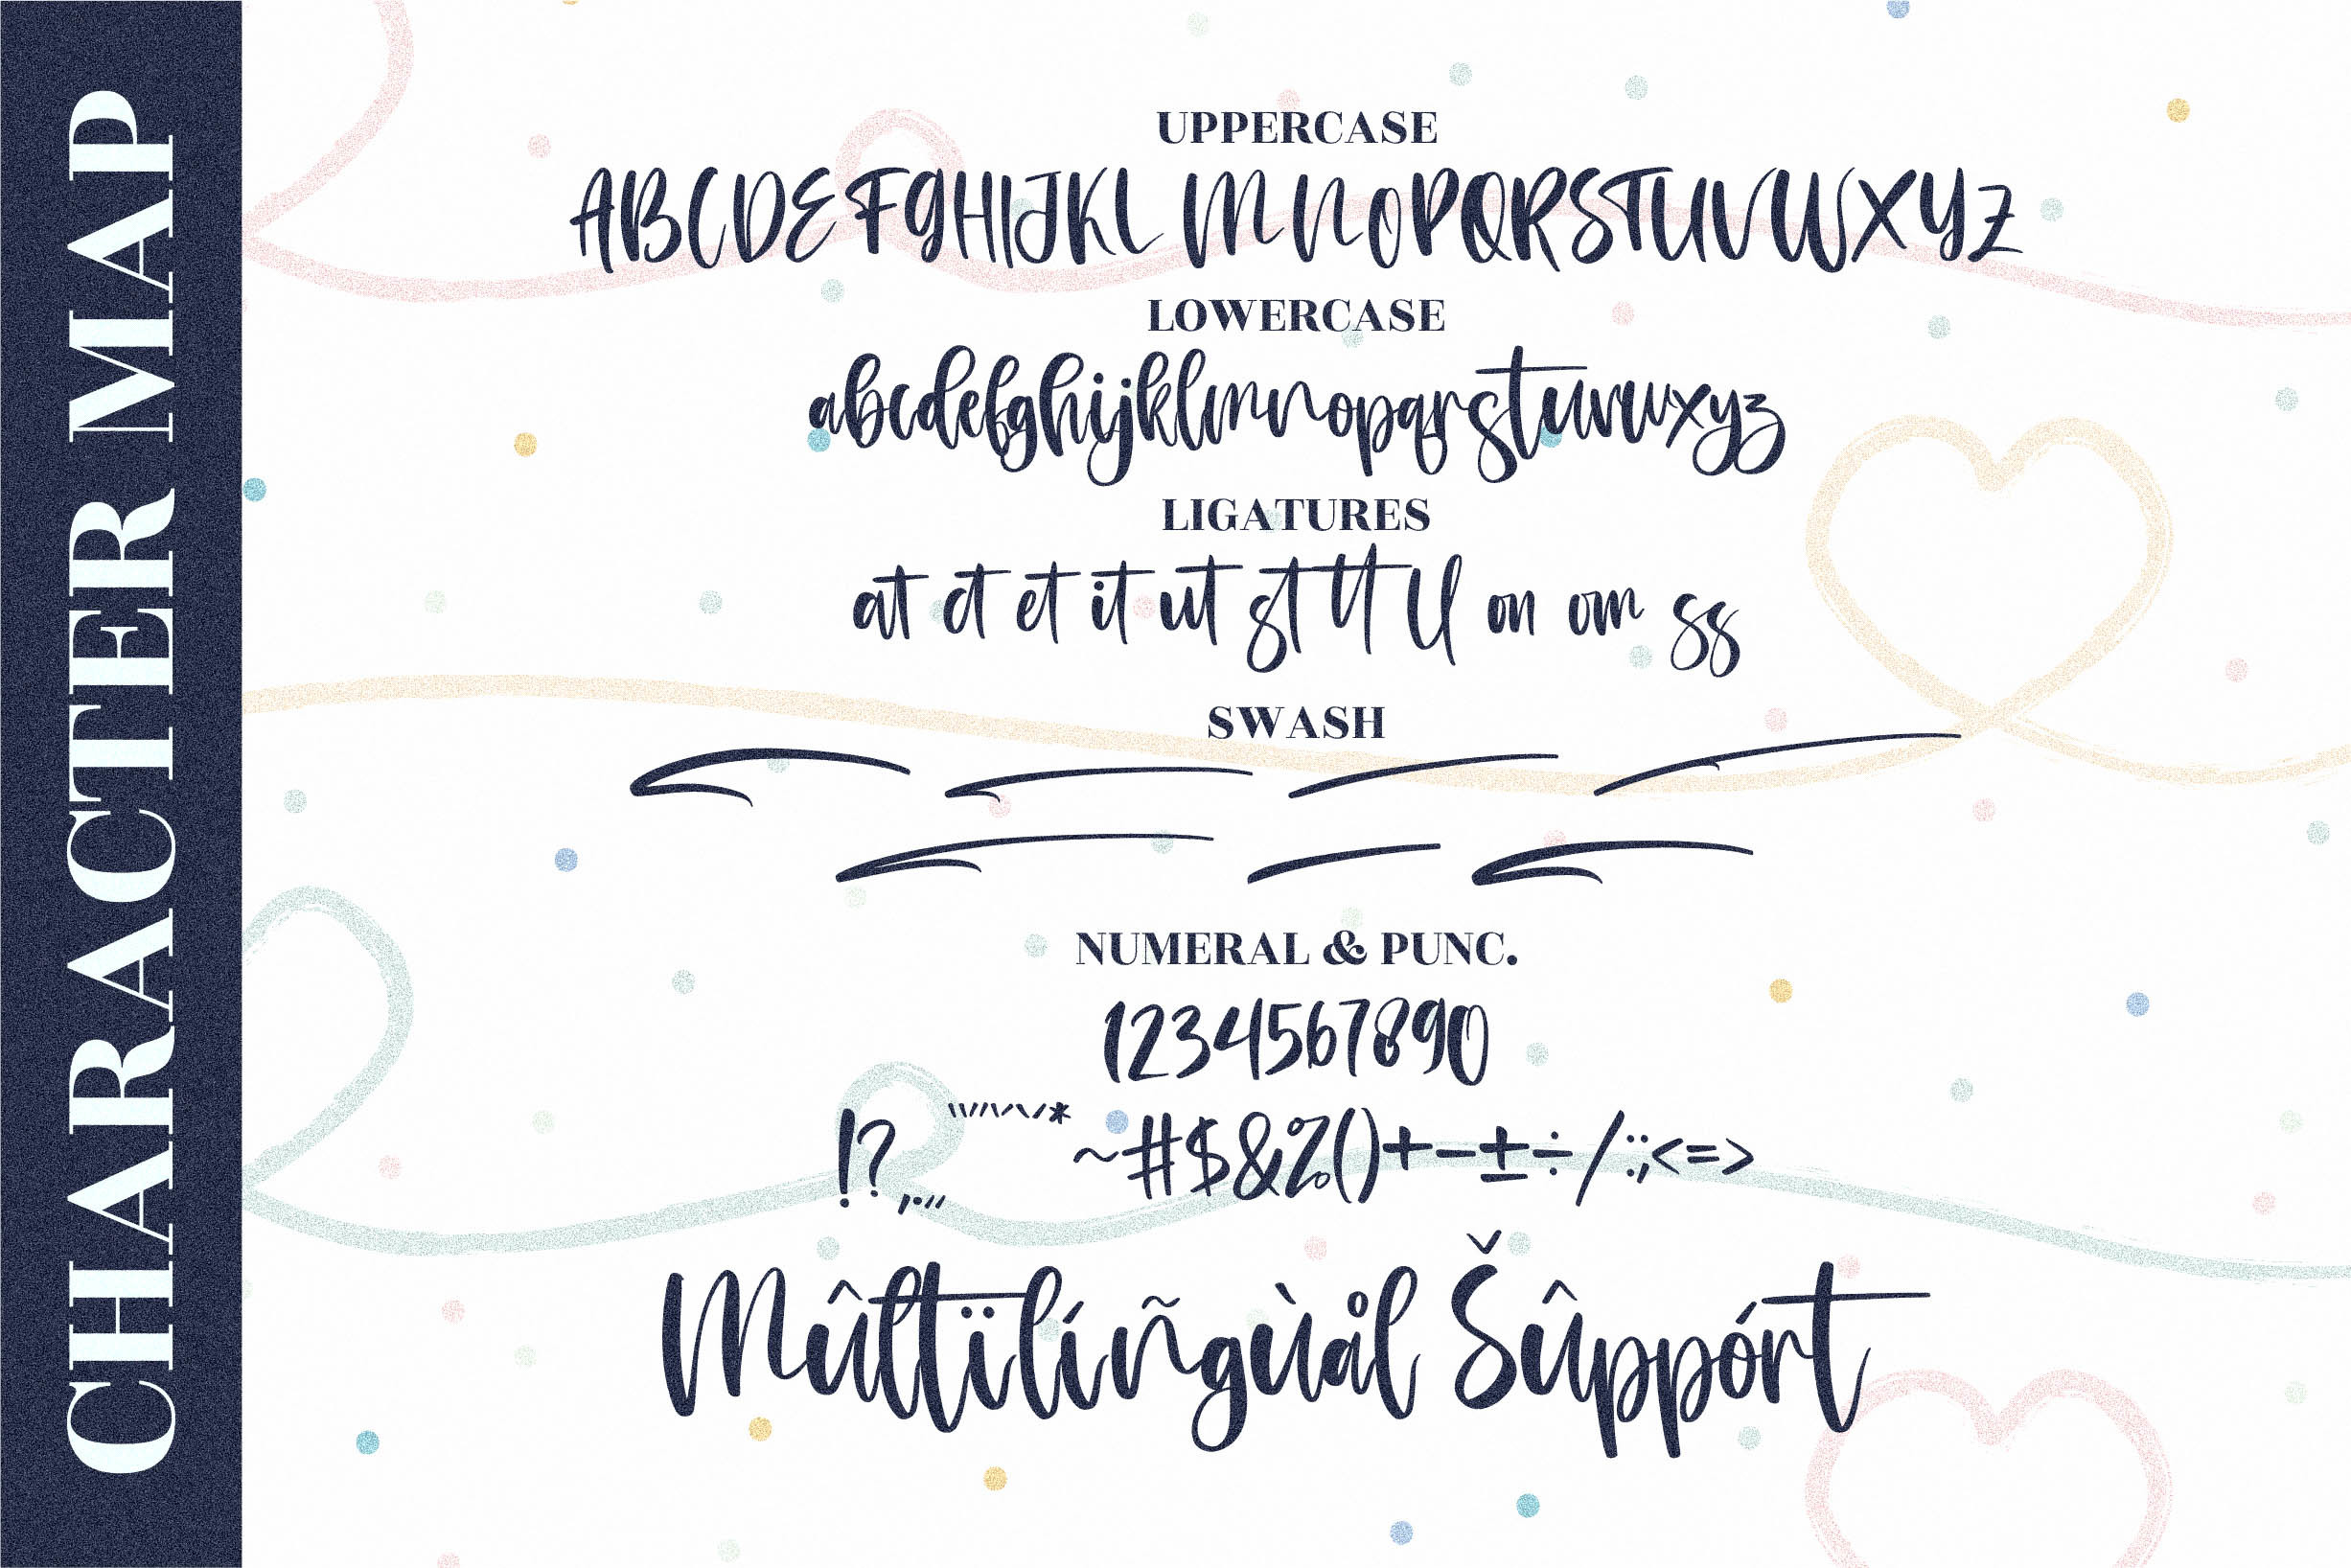 CHARACTER MAP
UPPERCASE
ABCDEFGHIJKL MNOPQRSTUVWXYZ
LOWERCASE
abcdefghijklmnopqrstuvwxyz
LIGATURES
at ct et it ut st tt ll on om ss
SWASH
NUMERAL & PUNC.
1234567890
!?,.„ ~#$&%()+−±÷/:;<=>
Mûltïlíñgùål Šûppórt